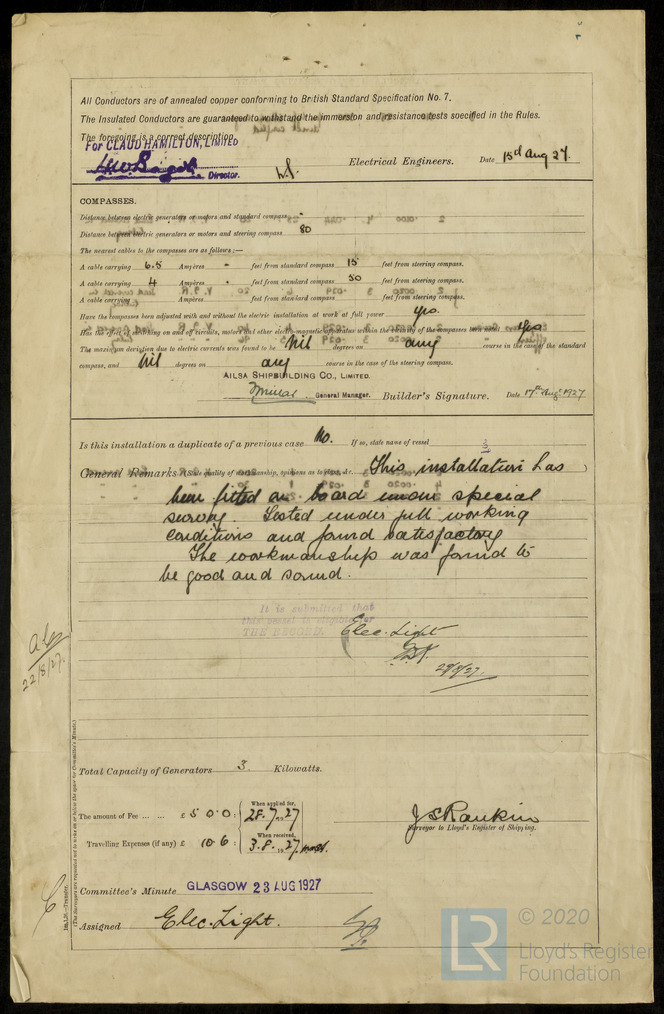 All Conductors are of annealed copper conforming to British Standard Specification No. 7.
The Insulated Conductors are guaranteed to withstand the immersion and resistance tests specified in the Rules.
The foregoing is a correct description.
For CLAUD HAMILTON, LIMITED
Director.
Electrical Engineers. Date 15d Aug 27.
COMPASSES.
Distance between electric generators or motors and standard compass -
Distance between electric generators or motors and steering compass 80
The nearest cables to the compasses are as follows:—
A cable carrying 6.5 Ampères - feet from standard compass 15 feet from steering compass.
A cable carrying 4 Ampères - feet from standard compass 50 feet from steering compass.
A cable carrying Ampères feet from standard compass feet from steering compass.
Have the compasses been adjusted with and without the electric installation at work at full power yes.
Has the effect of switching on and off circuits, motors and other electro-magnetic apparatus within the vicinity of the compasses been yes
The maximum deviation due to electric currents was found to be Nil degrees on any course in the case of the standard
compass, and Nil degrees on any course in the case of the steering compass.
AILSA SHIPBUILDING CO., LIMITED.
General Manager. Builder's Signature. Date 17th Augt 1927
Is this installation a duplicate of a previous case No. If so, state name of vessel
General Remarks This installation has
been fitted on board under special
survey. Tested under full working
conditions and found satisfactory
The workmanship was found to
be good and sound.
It is submitted that
this vessel is eligible for
THE RECORD. Elec. Light
22/8/27.
Total Capacity of Generators 3 Kilowatts.
The amount of Fee ... ... £ 5 : 0 : 0 : When applied for, 28. 7. 1927
Travelling Expenses (if any) £ 10 : 6 : When received, 3. 8. 1927
J S Rankin
Surveyor to Lloyd's Register of Shipping.
Committee's Minute GLASGOW 23 AUG 1927
Assigned Elec. Light.
(The Surveyors are requested not to write on or below the space for Committee's Minute.)
LR
© 2020
Lloyd's Register
Foundation